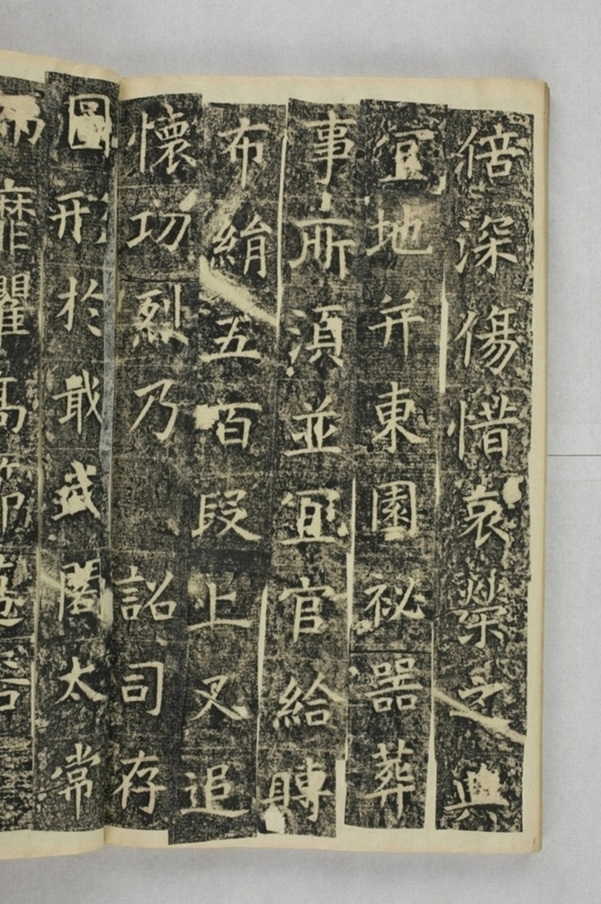 倍深傷惜哀榮之典
宜地并東園祕器葬
事所須並宜官給賻
布絹五百段上又追
懷功烈乃詔司存
圖形於戢武閣太常
靡瞿高節